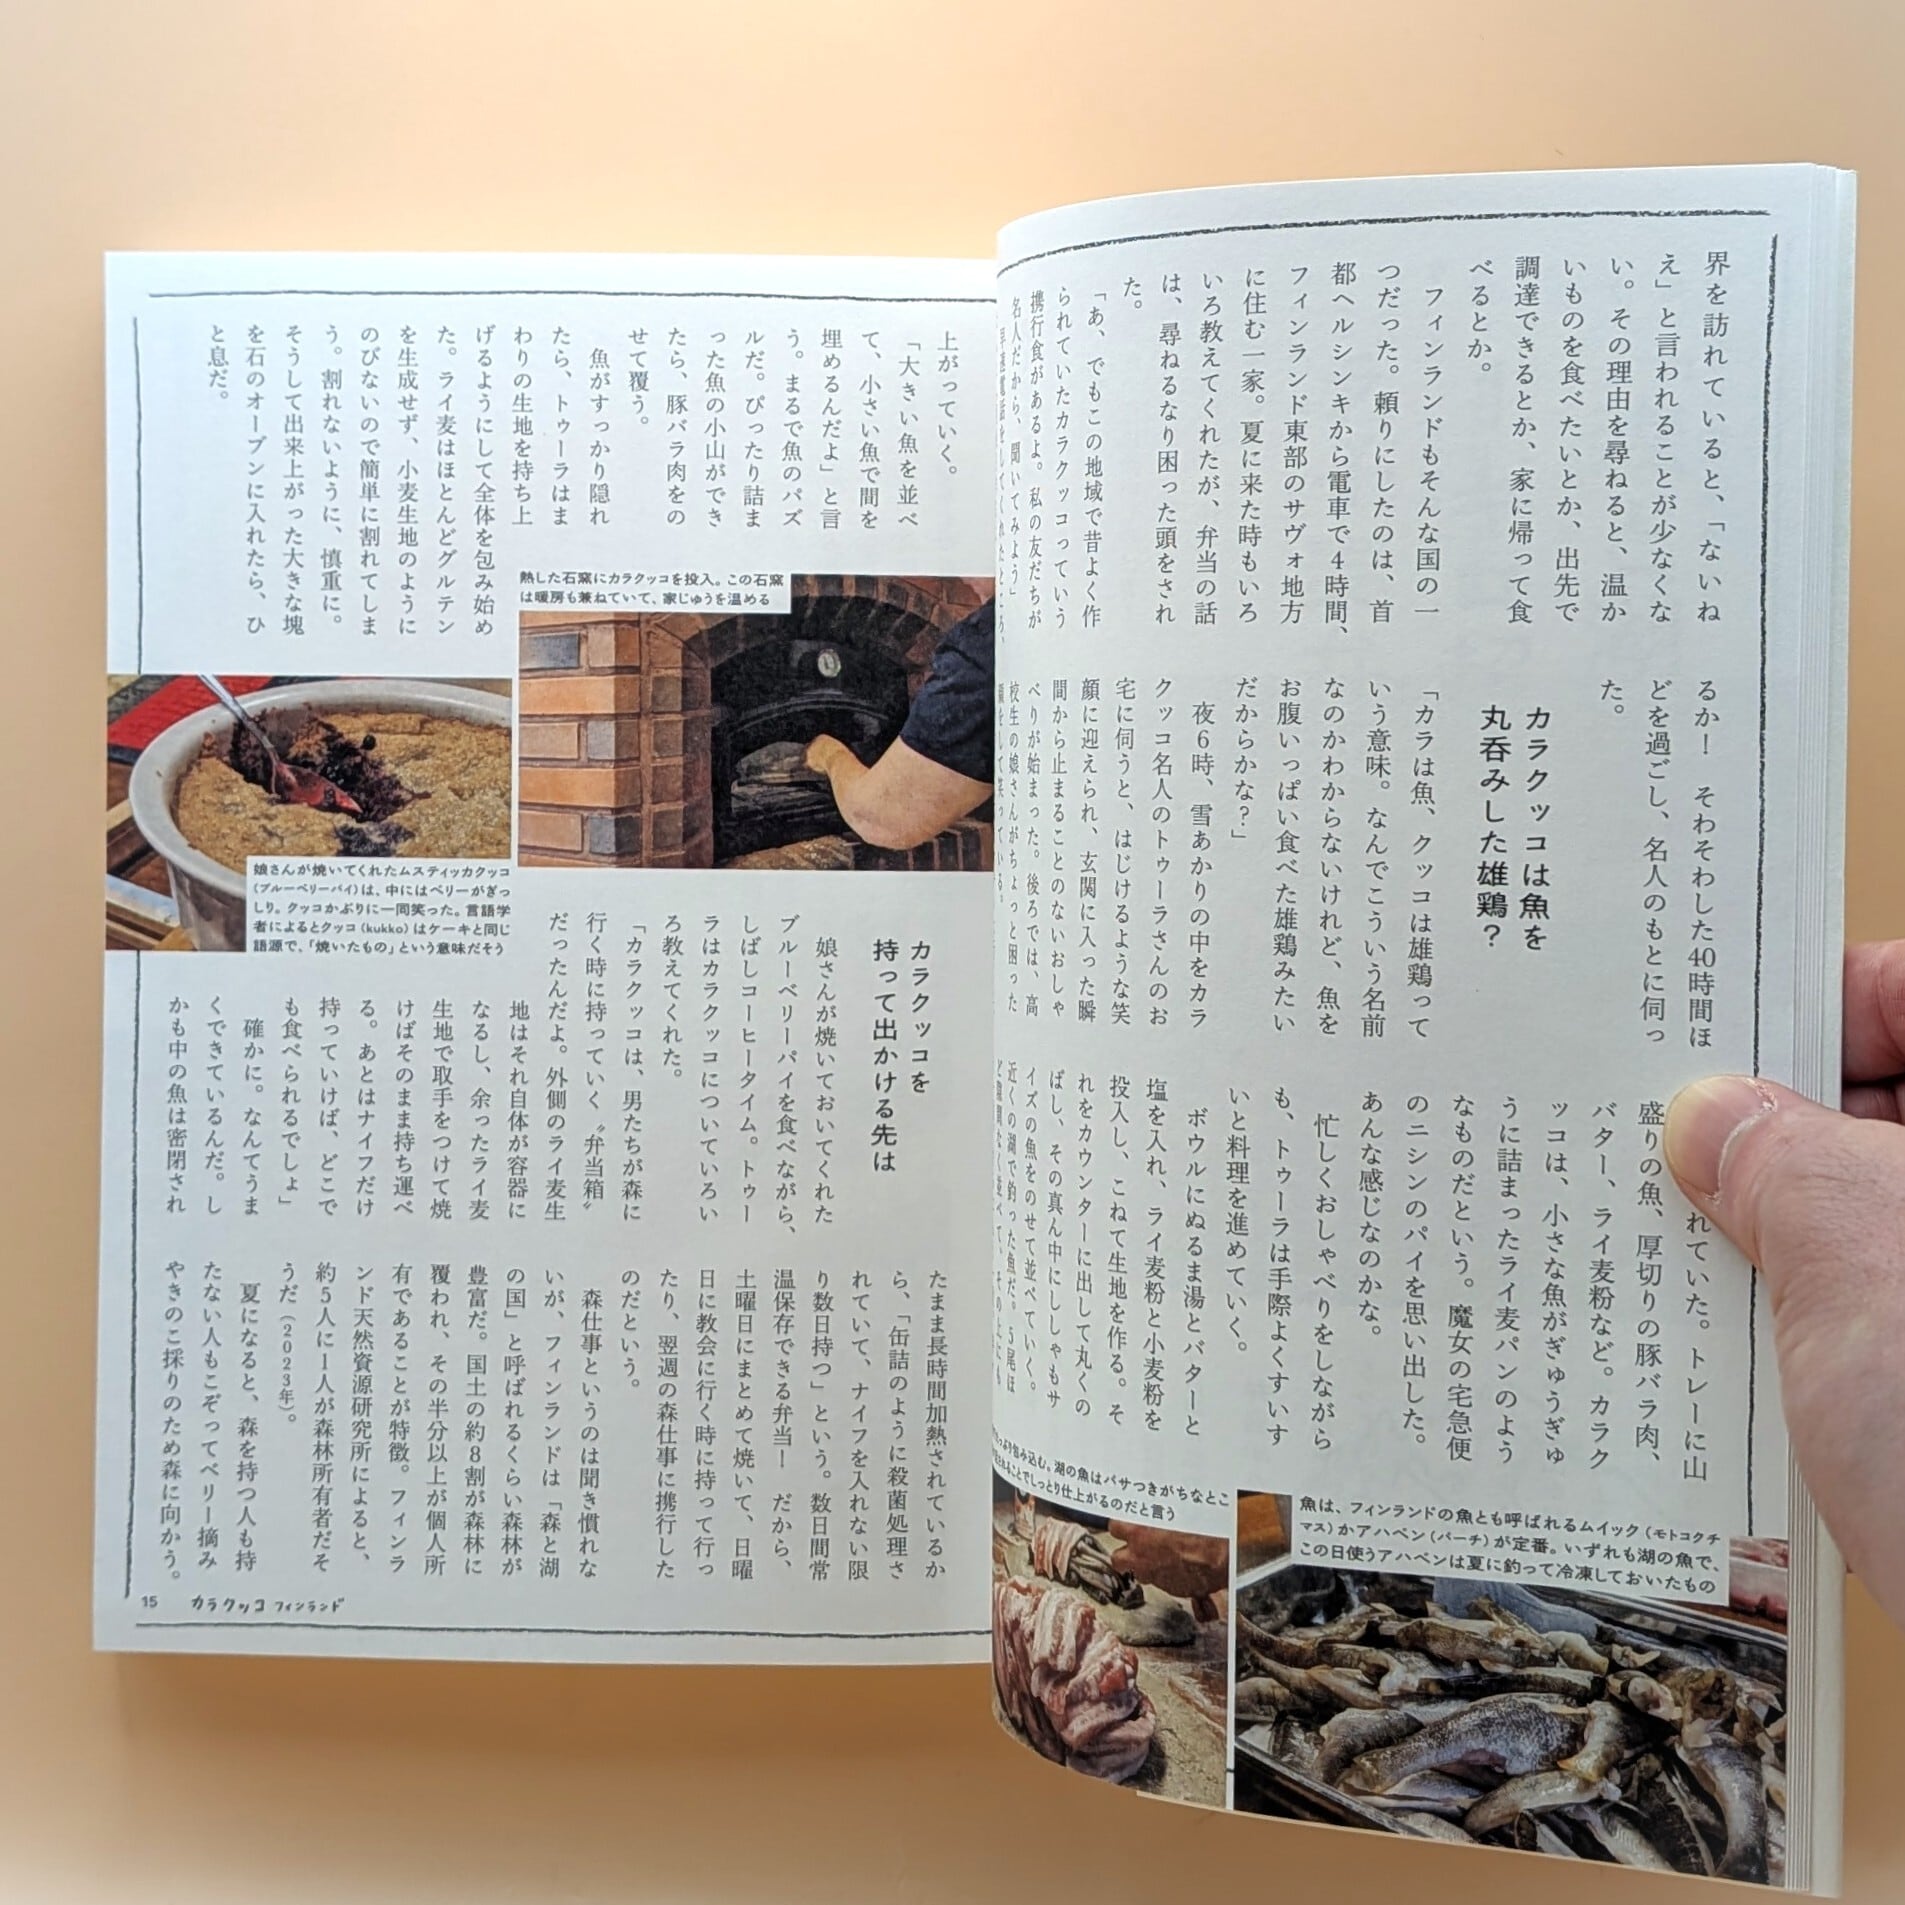 界を訪れていると、「ないね
え」と言われることが少なくな
い。その理由を尋ねると、温か
いものを食べたいとか、出先で
調達できるとか、家に帰って食
べるとか。
フィンランドもそんな国の一
つだった。頼りにしたのは、首
都ヘルシンキから電車で4時間、
フィンランド東部のサヴォ地方
に住む一家。夏に来た時もいろ
いろ教えてくれたが、弁当の話
は、尋ねるなり困った頭をされ
た。
「あ、でもこの地域で昔よく作
られていたカラクッコっていう
携行食があるよ。私の友だちが
名人だから、聞いてみよう」
早速電話をしてくれたところ、
るか！ そわそわした40時間ほ
どを過ごし、名人のもとに伺っ
た。
カラクッコは魚を
丸呑みした雄鶏？
「カラは魚、クッコは雄鶏って
いう意味。なんでこういう名前
なのかわからないけれど、魚を
お腹いっぱい食べた雄鶏みたい
だからかな？」
夜6時、雪あかりの中をカラ
クッコ名人のトゥーラさんのお
宅に伺うと、はじけるような笑
顔に迎えられ、玄関に入った瞬
間から止まることのないおしゃ
べりが始まった。後ろでは、高
校生の娘さんがちょっと困った
顔をして笑っている。
れていた。トレーに山
盛りの魚、厚切りの豚バラ肉、
バター、ライ麦粉など。カラク
ッコは、小さな魚がぎゅうぎゅ
うに詰まったライ麦パンのよう
なものだという。魔女の宅急便
のニシンのパイを思い出した。
あんな感じなのかな。
忙しくおしゃべりをしながら
も、トゥーラは手際よくすいす
いと料理を進めていく。
ボウルにぬるま湯とバターと
塩を入れ、ライ麦粉と小麦粉を
投入し、こねて生地を作る。そ
れをカウンターに出して丸くの
ばし、その真ん中にししゃもサ
イズの魚をのせて並べていく。
近くの湖で釣った魚だ。5尾ほ
ど隙間なく並べて、その上にも
っぷり包み込む。湖の魚はパサつきがちなとこ
されることでしっとり仕上がるのだと言う
魚は、フィンランドの魚とも呼ばれるムイック（モトコクチ
マス）かアハベン（パーチ）が定番。いずれも湖の魚で、
この日使うアハベンは夏に釣って冷凍しておいたもの
上がっていく。
「大きい魚を並べ
て、小さい魚で間を
埋めるんだよ」と言
う。まるで魚のパズ
ルだ。ぴったり詰ま
った魚の小山ができ
たら、豚バラ肉をの
せて覆う。
魚がすっかり隠れ
たら、トゥーラはま
わりの生地を持ち上
げるようにして全体を包み始め
た。ライ麦はほとんどグルテン
を生成せず、小麦生地のように
のびないので簡単に割れてしま
う。割れないように、慎重に。
そうして出来上がった大きな塊
を石のオーブンに入れたら、ひ
と息だ。
熱した石窯にカラクッコを投入。この石窯
は暖房も兼ねていて、家じゅうを温める
娘さんが焼いてくれたムスティッカクッコ
（ブルーベリーパイ）は、中にはベリーがぎっ
しり。クッコかぶりに一同笑った。言語学
者によるとクッコ（kukko）はケーキと同じ
語源で、「焼いたもの」という意味だそう
カラクッコを
持って出かける先は
娘さんが焼いておいてくれた
ブルーベリーパイを食べながら、
しばしコーヒータイム。トゥー
ラはカラクッコについていろい
ろ教えてくれた。
「カラクッコは、男たちが森に
行く時に持っていく〝弁当箱〟
だったんだよ。外側のライ麦生
地はそれ自体が容器に
なるし、余ったライ麦
生地で取手をつけて焼
けばそのまま持ち運べ
る。あとはナイフだけ
持っていけば、どこで
も食べられるでしょ」
確かに。なんてうま
くできているんだ。し
かも中の魚は密閉され
たまま長時間加熱されているか
ら、「缶詰のように殺菌処理さ
れていて、ナイフを入れない限
り数日持つ」という。数日間常
温保存できる弁当！ だから、
土曜日にまとめて焼いて、日曜
日に教会に行く時に持って行っ
たり、翌週の森仕事に携行した
のだという。
森仕事というのは聞き慣れな
いが、フィンランドは「森と湖
の国」と呼ばれるくらい森林が
豊富だ。国土の約8割が森林に
覆われ、その半分以上が個人所
有であることが特徴。フィンラ
ンド天然資源研究所によると、
約5人に1人が森林所有者だそ
うだ（2023年）。
夏になると、森を持つ人も持
たない人もこぞってベリー摘み
やきのこ採りのため森に向かう。
15 カラクッコ フィンランド